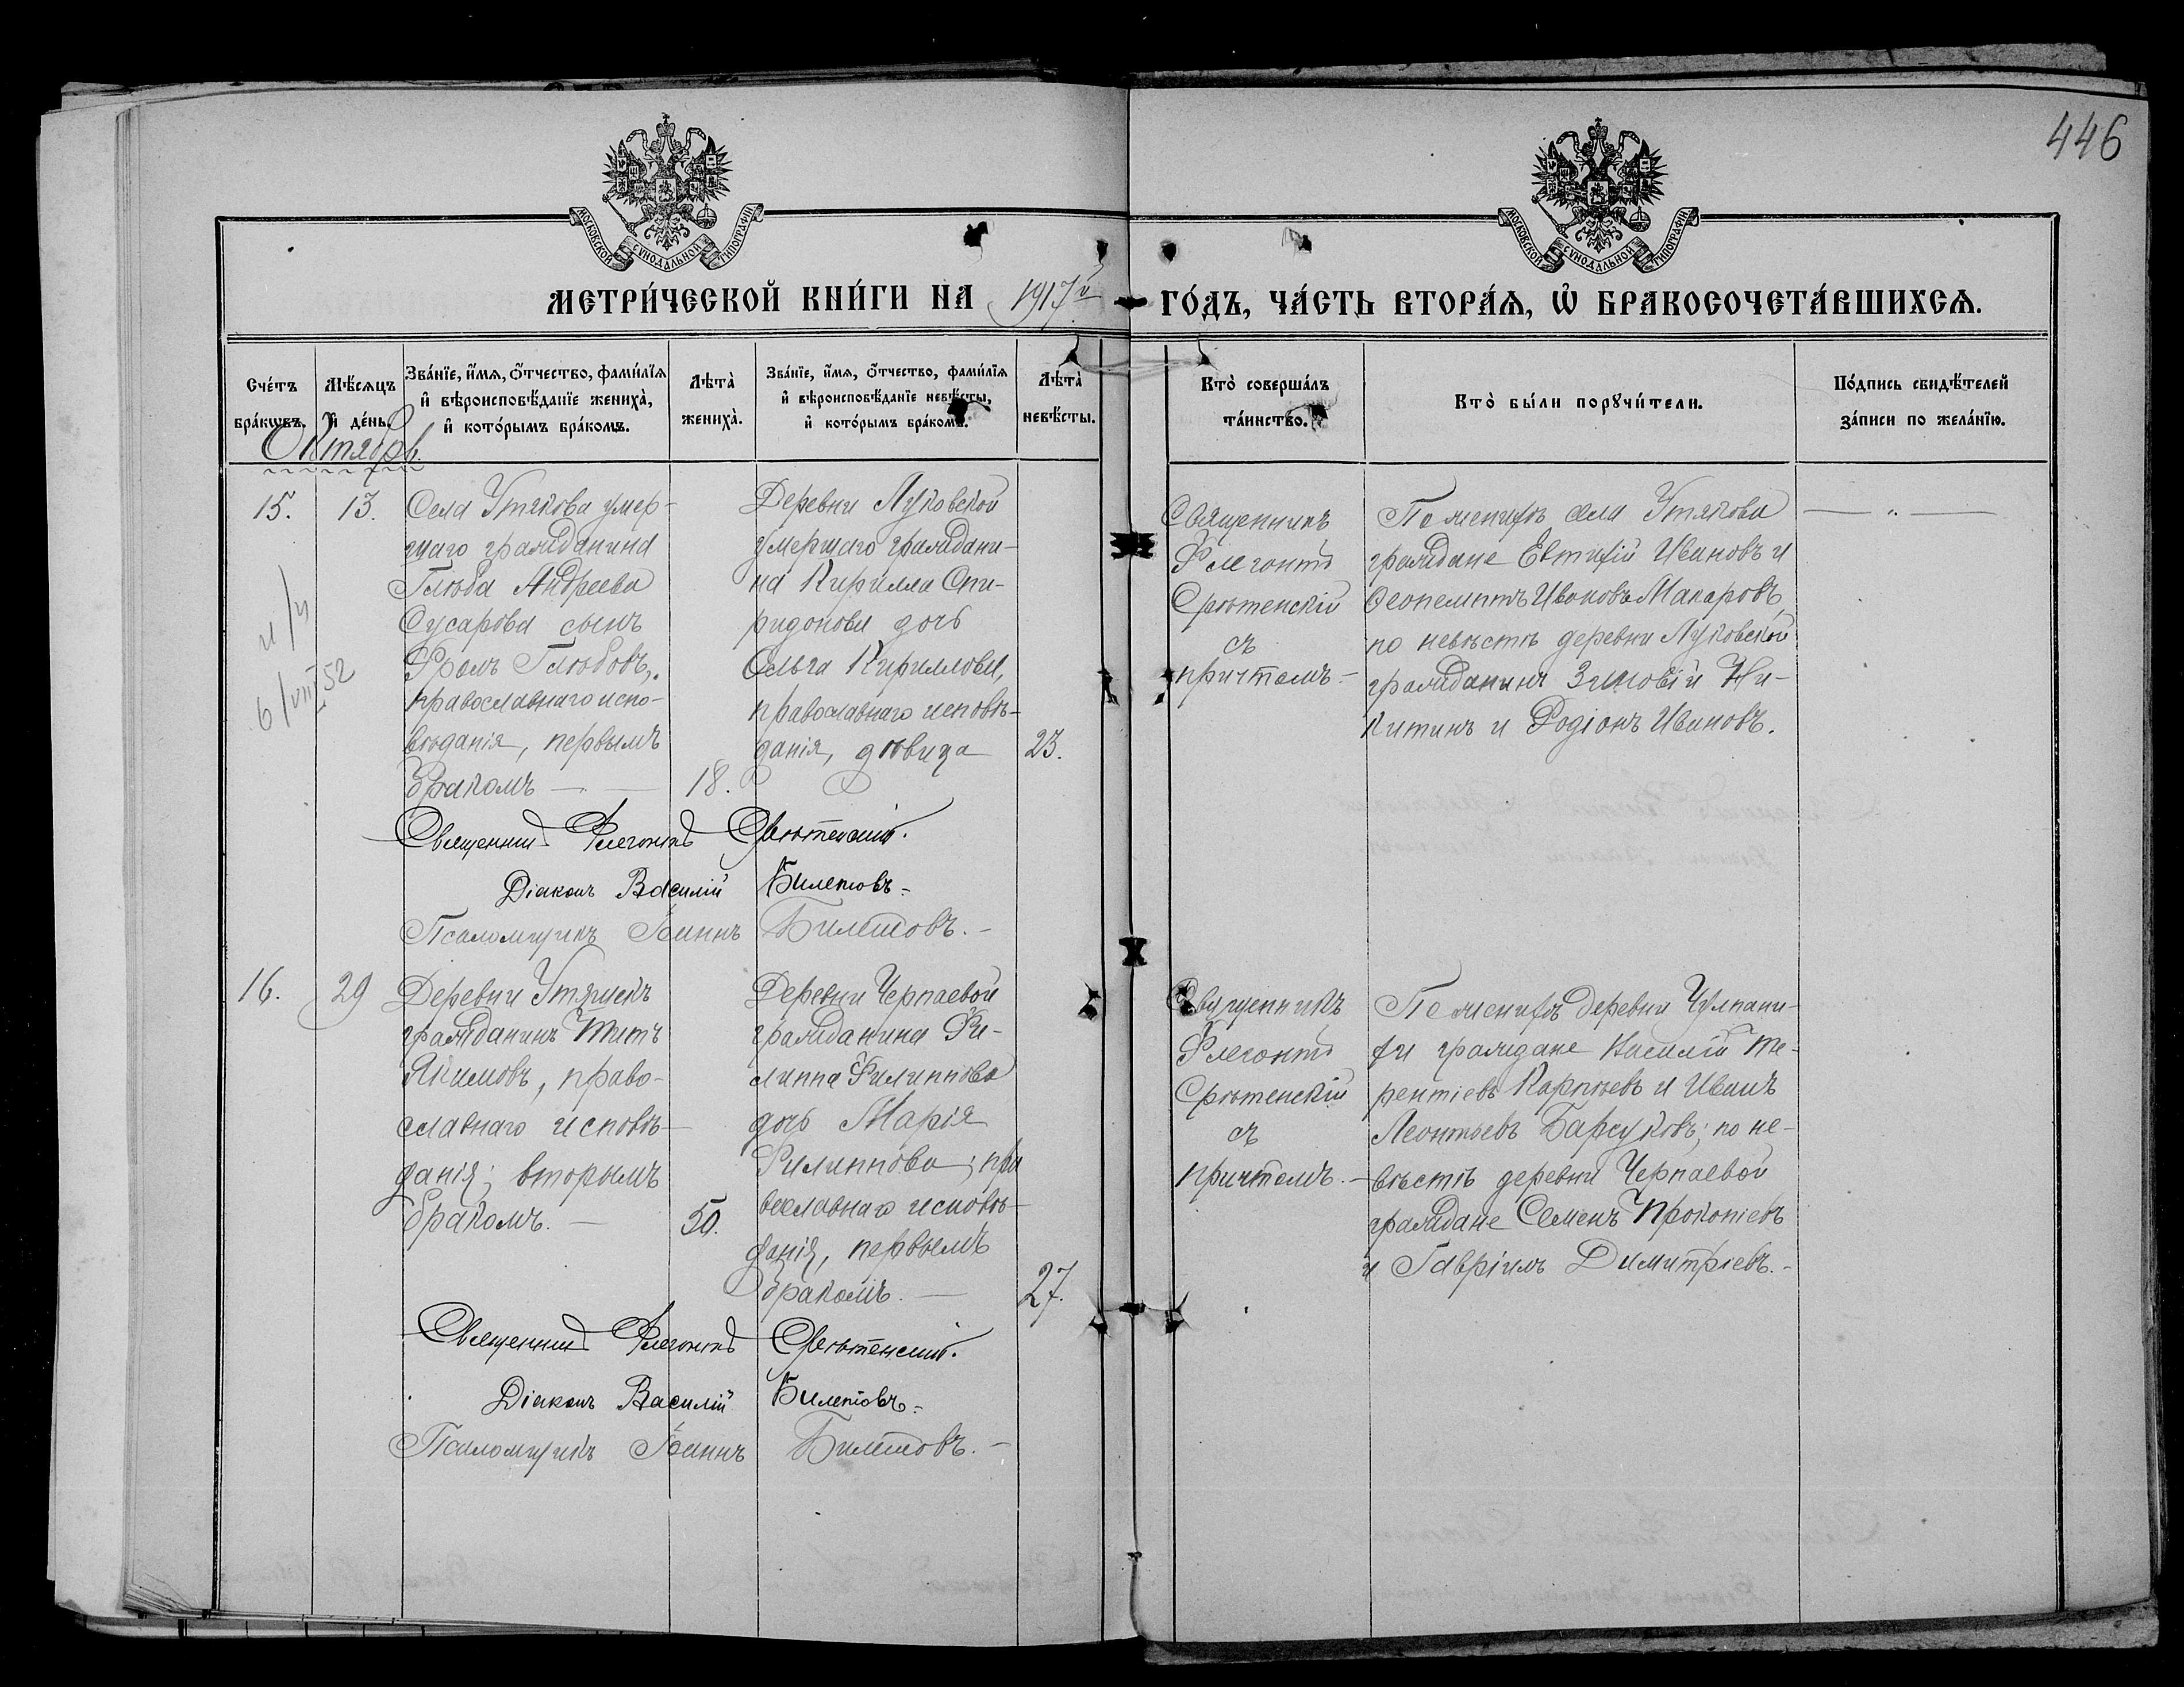 446
МОСКОВСКОЙ СѴНОДАЛЬНОЙ ТИПОГРАФІИ
МОСКОВСКОЙ СѴНОДАЛЬНОЙ ТИПОГРАФІИ
МЕТРИ́ЧЕСКОЙ КНИ́ГИ НА 1917й ГО́ДЪ, ЧА́СТЬ ВТОРА́Ѧ, Ѡ҆ БРАКОСОЧЕТА́ВШИХСѦ.
Сче́тъ бра́кѡвъ.
Мѣ́сѧцъ и҆ де́нь.
Зва́нїе, и҆́мѧ, ѻ҆́тчество, фами́лїѧ
и҆ вѣроисповѣ́данїе жениха̀,
и҆ кото́рымъ бра́комъ.
Лѣта̀ жениха̀.
Зва́нїе, и҆́мѧ, ѻ҆́тчество, фами́лїѧ
и҆ вѣроисповѣ́данїе невѣ́сты,
и҆ кото́рымъ бра́комъ.
Лѣта̀ невѣ́сты.
Кто̀ соверша́лъ
та́инство.
Кто̀ бы́ли порꙋчи́тели.
По́дпись свидѣ́телей
за́писи по жела́нїю.
Октябрь.
15.
13.
Села Утякова умер-
шаго гражданина
Глѣба Андреева
Сусарова сынъ
Фролъ Глѣбовъ,
православнаго испо-
вѣданія, первымъ
бракомъ —
18.
Деревни Луковской
умершаго граждани-
на Кирилла Спи-
ридонова дочь
Ольга Кириллова,
православнаго исповѣ-
данія, дѣвица
23.
Священникъ
Флегонтъ
Срѣтенскій
съ
причтомъ.-
По женихѣ села Утякова
граждане Евтихій Ивановъ и
Ѳеопемптъ Ивановъ Макаровъ,
по невѣстѣ деревни Луковской
гражданинъ Зиновій Ни-
китинъ и Родіонъ Ивановъ.
— „ —
6/VIII 52
Священникъ Флегонтъ Срѣтенскій.
Діаконъ Василій Билетовъ.
Псаломщикъ Іоаннъ Билетовъ.-
16.
29
Деревни Утяшекъ
гражданинъ Титъ
Якимовъ, право-
славнаго исповѣ-
данія; вторымъ
бракомъ. —
50.
Деревни Черпаевой
гражданина Фи-
липпа Филиппова
дочь Марія
Филиппова; пра
вославнаго исповѣ-
данія, первымъ
бракомъ. —
27.
Священникъ
Флегонтъ
Срѣтенскій
съ
причтомъ.-
По женихѣ деревни Чулпани-
хи граждане Василій Те-
рентіевъ Карпѣевъ и Иванъ
Леонтьевъ Барсуковъ; по не-
вѣстѣ деревни Черпаевой
граждане Семенъ Прокопіевъ
и Гавріилъ Димитріевъ.-
Священникъ Флегонтъ Срѣтенскій.
Діаконъ Василій Билетовъ.
Псаломщикъ Іоаннъ Билетовъ.-